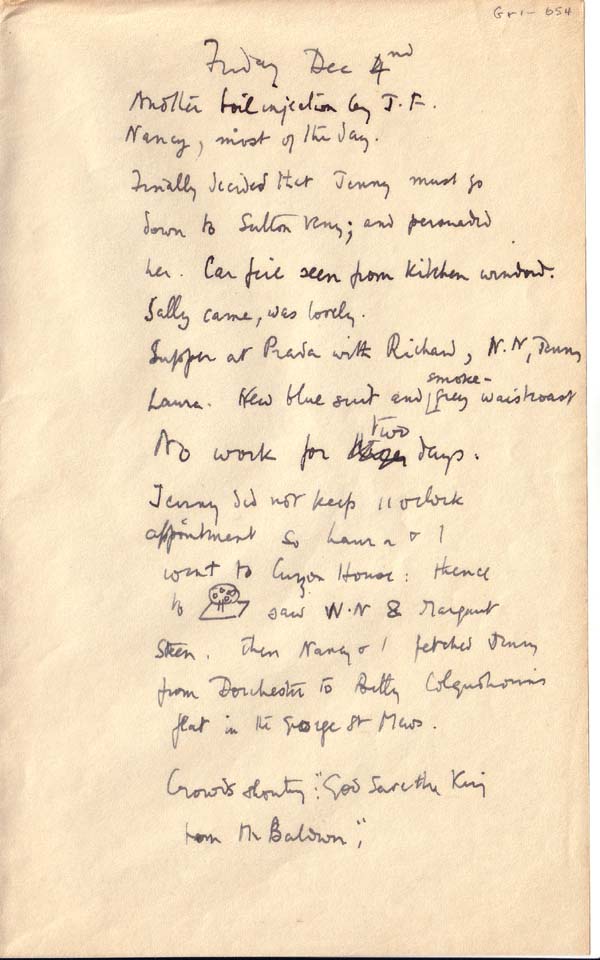 Gri- 654
Friday Dec 4nd
Another boil injection by J.F.
Nancy, most of the day.
Finally decided that Jenny must go
down to Sutton Veny; and persuaded
her. Car fire seen from kitchen window.
Sally came, was lovely.
Supper at Prada with Richard, N.N, Jenny
Laura. New blue suit and smoke-grey waistcoat
No work for two days.
Jenny did not keep 11 oclock
appointment so Laura & I
went to Curzon House: thence
to saw W.N & Margaret
Steen. Then Nancy & I fetched Jenny
from Dorchester to Betty Colquhoun's
flat in the George St Mews.
Crowds shouting: "God Save the King
from Mr Baldwin",